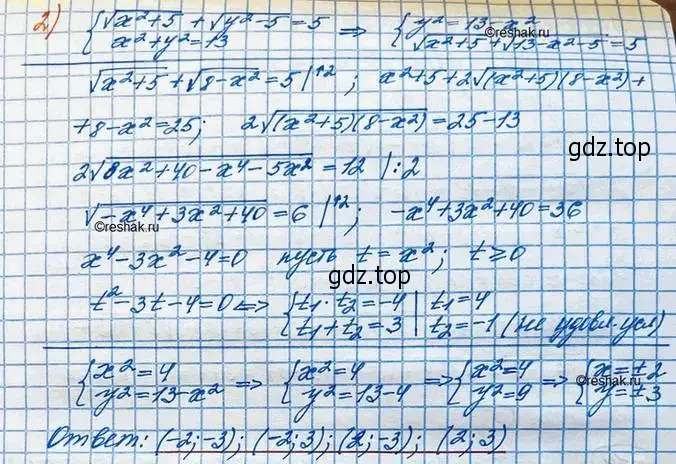 2) {√x²+5 + √y²-5 = 5 ⇒ {y² = 13-x²
{x²+y² = 13 {√x²+5 + √13-x²-5 = 5
©reshak.ru
√x²+5 + √8-x² = 5 |^2 ; x²+5+2√(x²+5)(8-x²) +
+8-x²=25; 2√(x²+5)(8-x²) = 25-13
gdz.top
2√8x²+40-x⁴-5x² = 12 | :2
√-x⁴+3x²+40 = 6 |^2 ; -x⁴+3x²+40=36
©reshak.ru
x⁴-3x²-4=0 пусть t = x²; t ≥ 0
gdz.top
t²-3t-4=0 ⇔ {t₁·t₂=-4 | t₁=4
{t₁+t₂=3 | t₂=-1 (не удовл. усл)
{x²=4 ⇒ {x²=4 ⇒ {x²=4 ⇒ {x=±2
{y²=13-x² {y²=13-4 {y²=9 {y=±3
©reshak.ru
Ответ: (-2;-3); (-2;3); (2;-3); (2;3)
gdz.top